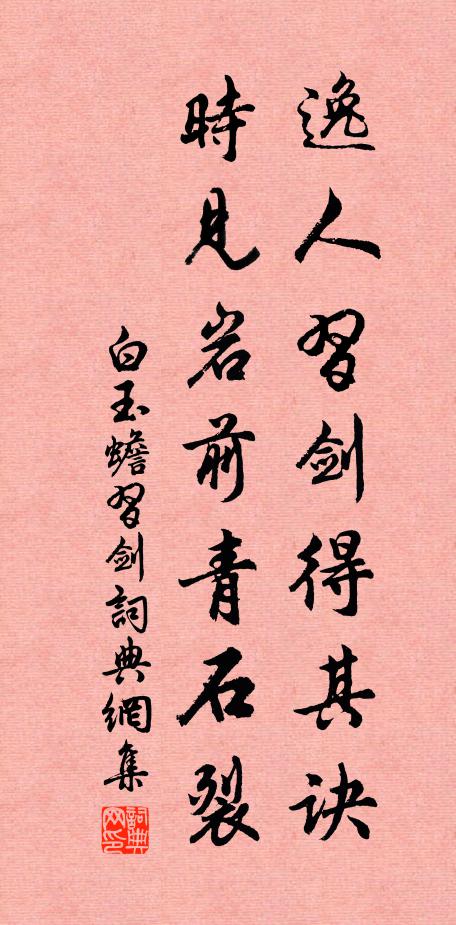 逸人習劍得其訣
時見岩前青石裂
白玉蟾習劍詞典網集
詞典网印